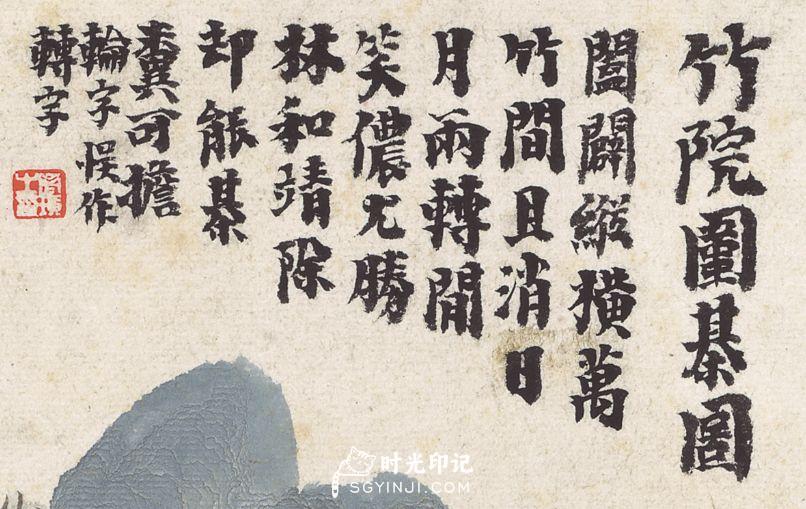 竹院圍棊圖
闔闢縱橫萬
竹間且消日
月兩轉閒
笑儂尤勝
林和靖除
却能棊
糞可擔
輪字悮作
轉字
时光印记
SGYINJI.COM